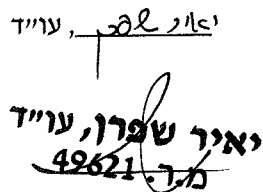 יאיר שפרן, עו״ד
יאיר שפרן, עו״ד
מ.ר. 49621